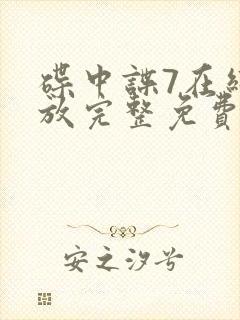 碟中諜7在
放完整免費
安之汐兮